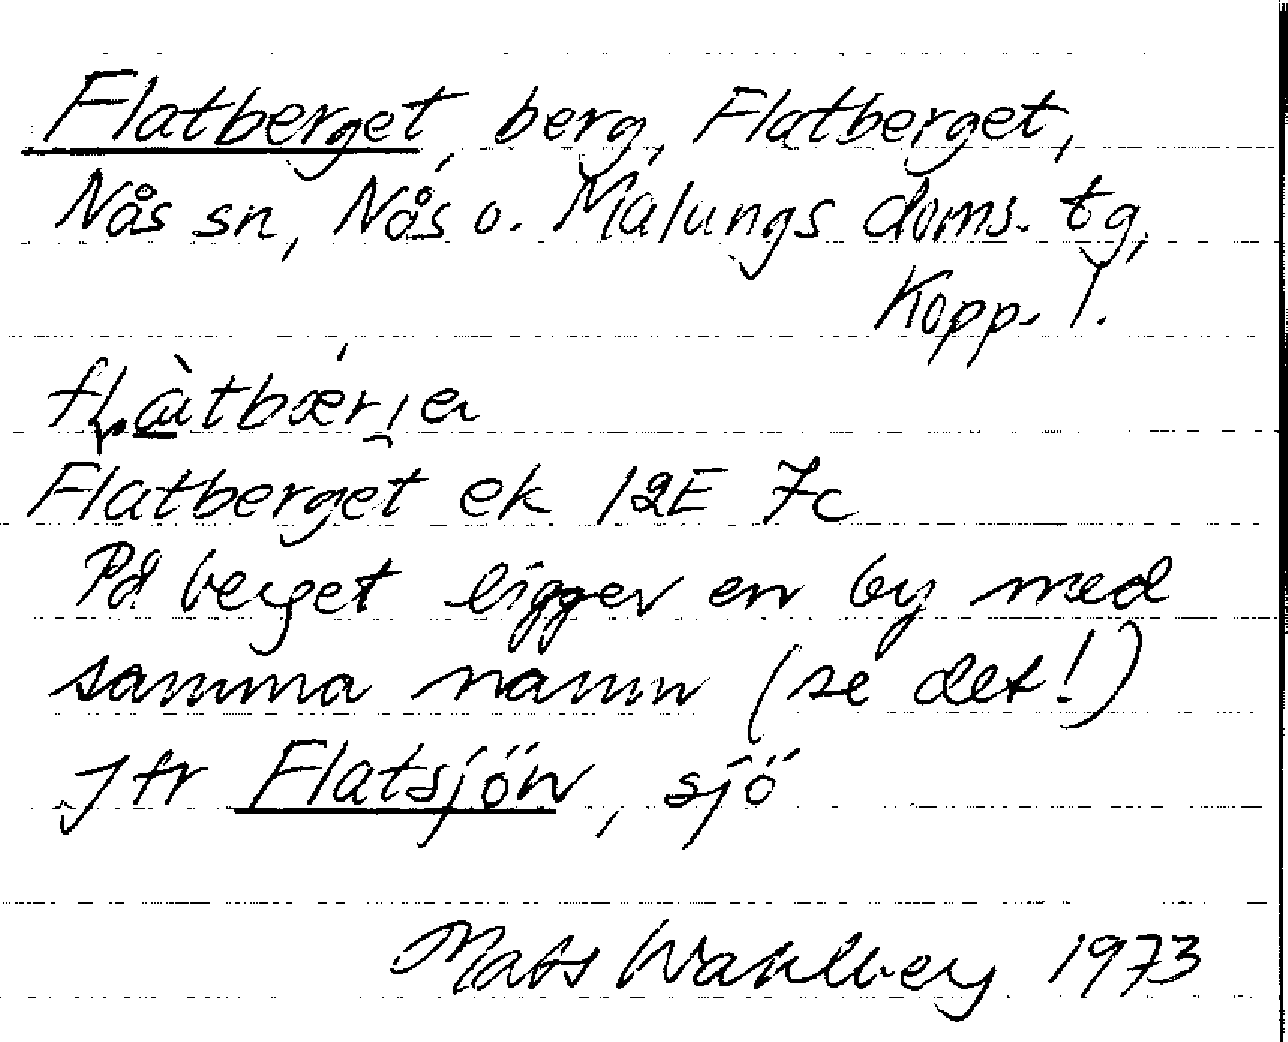 Flatberget, berg, Flatberget,
Nås sn, Nås o. Malungs doms. tg,
Kopp. l.
Flatberget ek 12E 7c
På berget ligger en by med
samma namn (se det!)
Jfr Flatsjön, sjö
Mats Wahlberg 1973